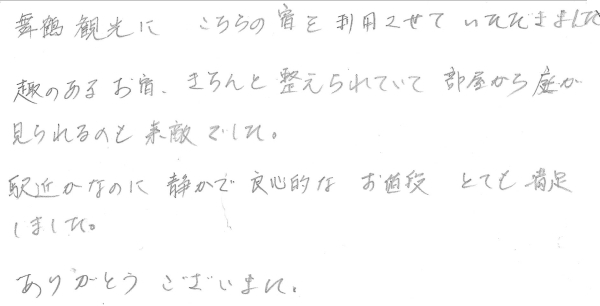 舞鶴観光に こちらの宿を利用させていただきました
趣のあるお宿、きちんと整えられていて 部屋から庭が
見られるのも素敵でした。
駅近かなのに 静かで良心的な お値段 とても満足
しました。
ありがとう ございました。